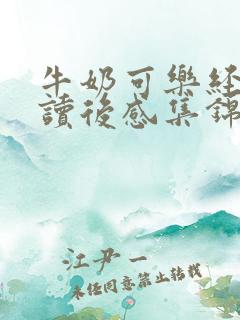 牛奶可樂經
讀後感集錦
江尹一
未经同意禁止转载